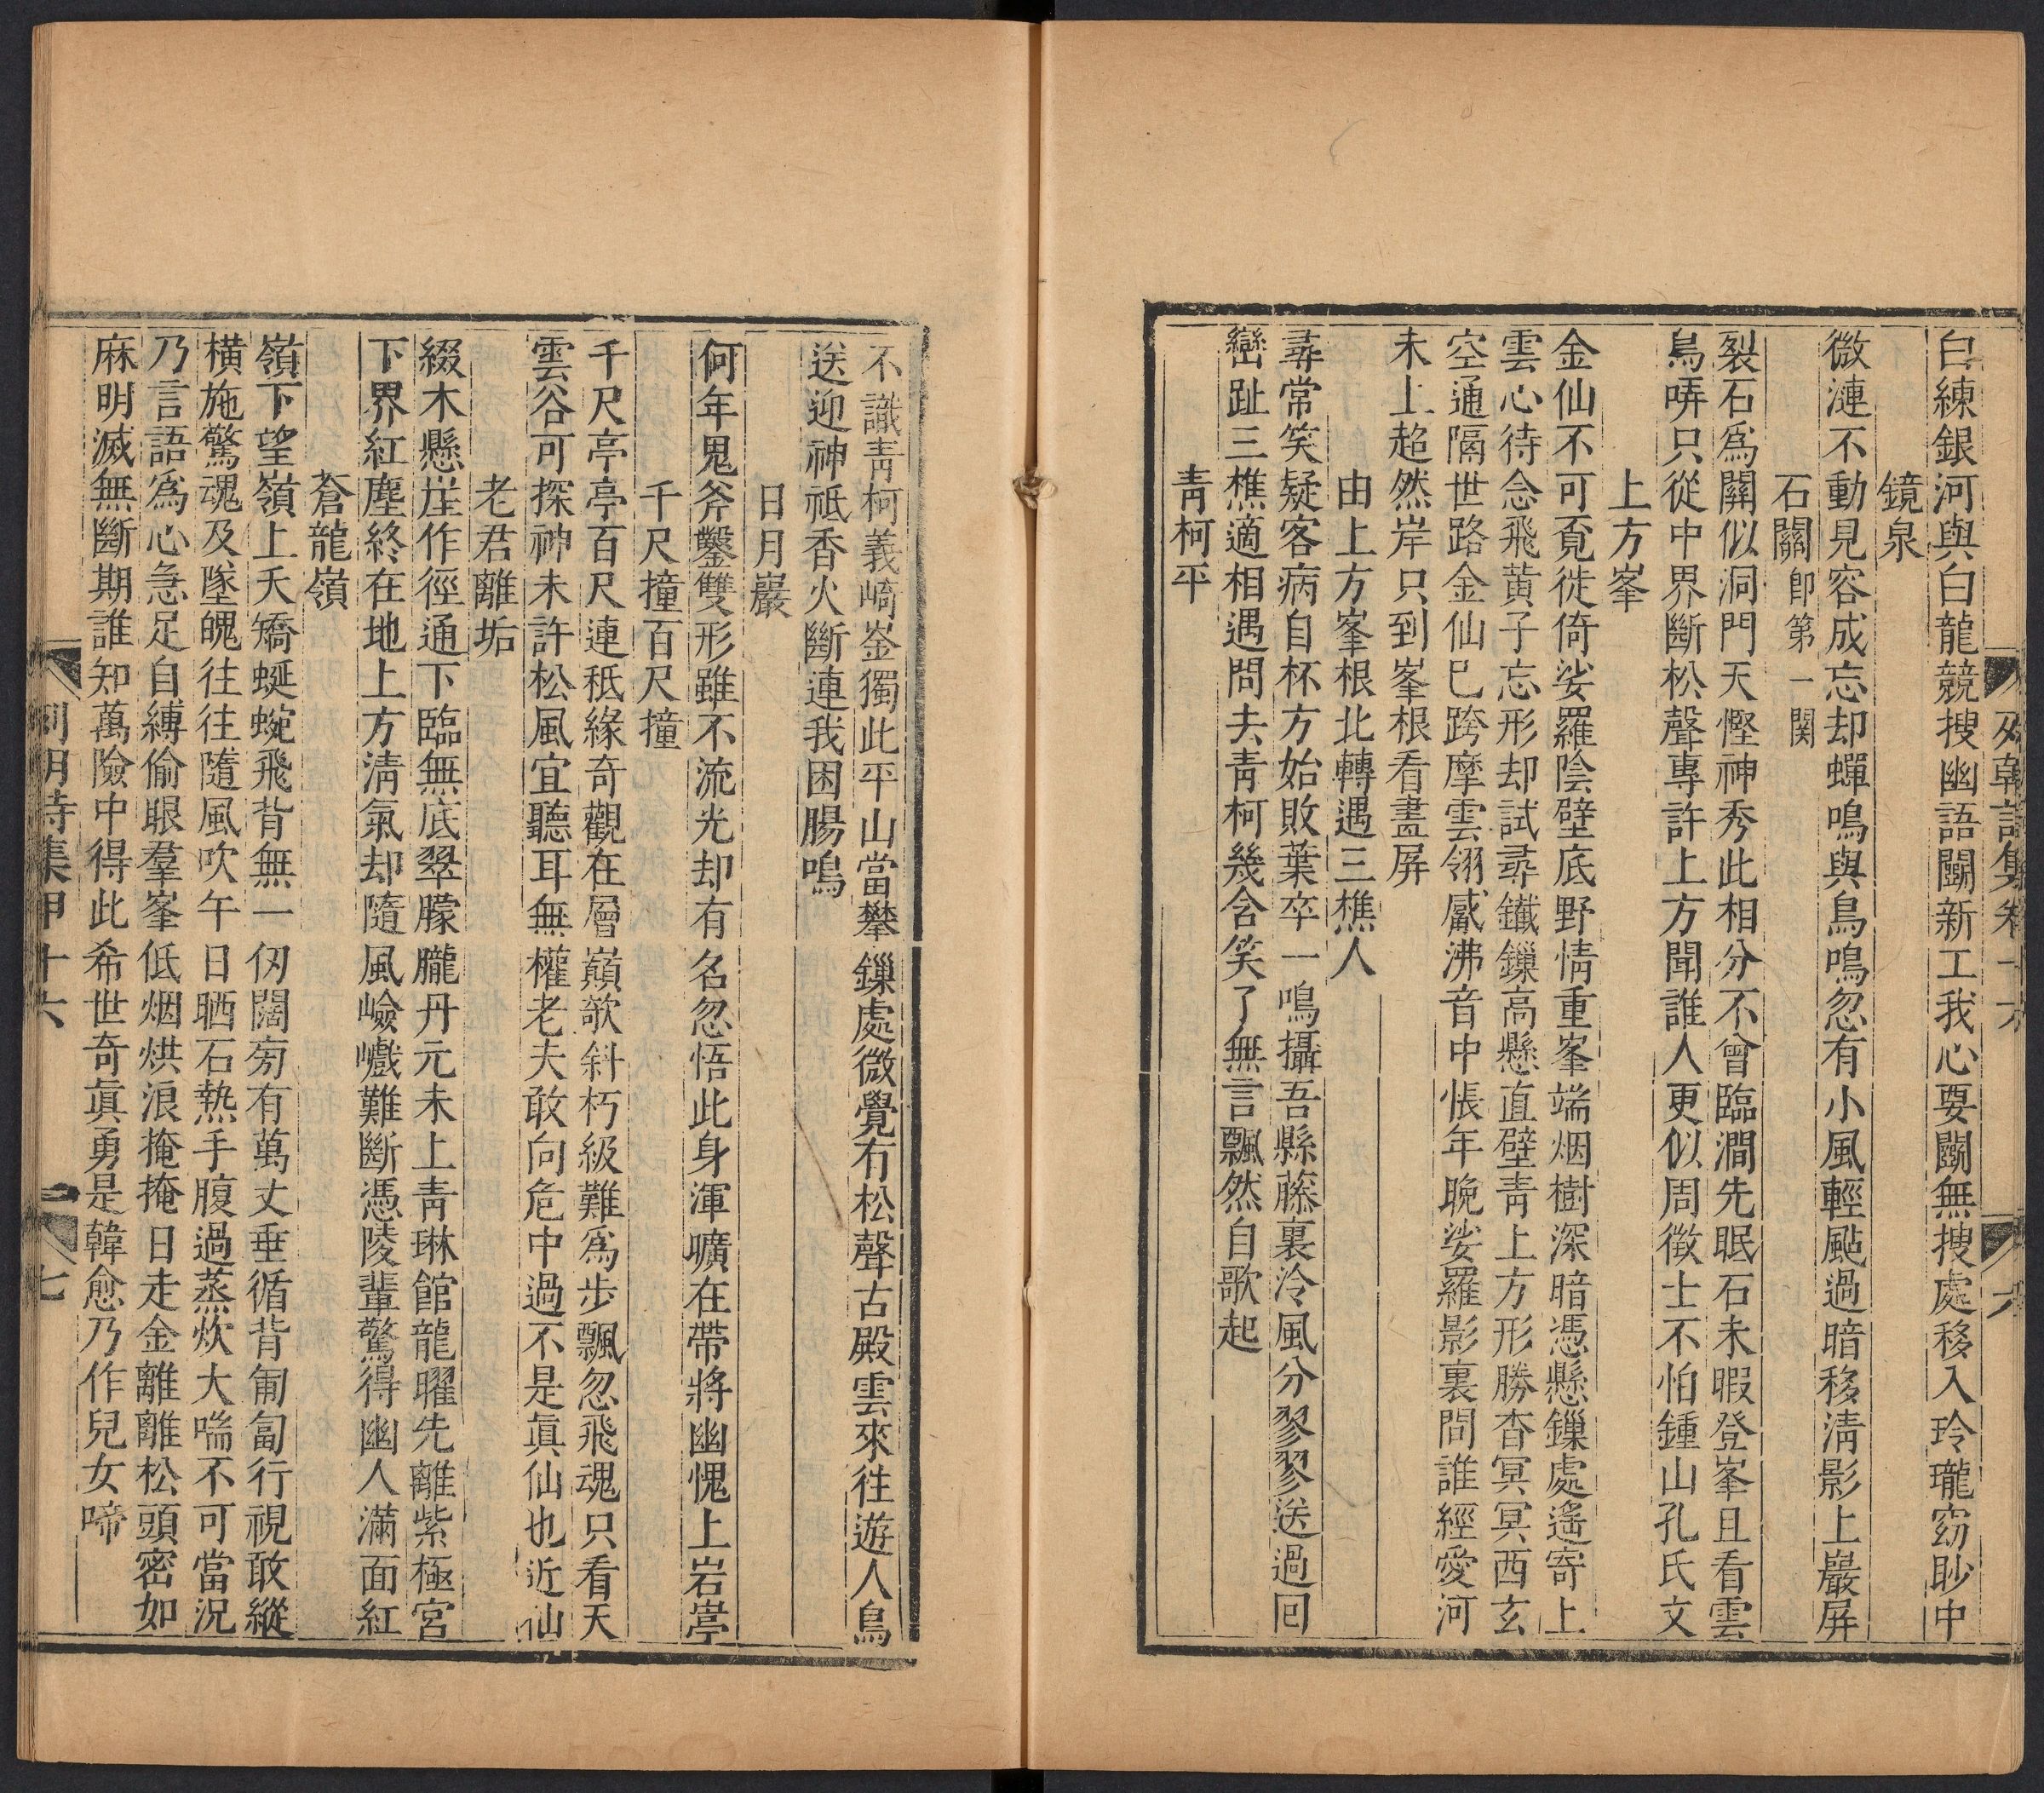 白練銀河與白龍競搜幽語鬭新工我心要鬭無搜處移入玲瓏窈眇中
鏡泉
微漣不動見容成忘却蟬鳴與鳥鳴忽有小風輕颭過暗移淸影上巖屏
石關 卽第一関
裂石爲關似洞門天慳神秀此相分不曾臨澗先眠石未暇登峯且看雲
鳥哢只從中界斷松聲專許上方聞誰人更似周徴士不怕鍾山孔氏文
上方峯
金仙不可覔徙倚娑羅陰壁底野情重峯端烟樹深暗憑懸鏁處遙寄上
雲心待念飛黄子忘形却試尋鐵鏁高懸直壁靑上方形勝杳冥冥西玄
空通隔世路金仙巳跨摩雲翎虙沸音中悵年晚娑羅影裏問誰經愛河
未上超然岸只到峯根看畫屏
由上方峯根北轉遇三樵人
尋常笑疑客病自杯方始敗葉卒一鳴攝吾縣藤裏冷風分翏翏送過囘
巒趾三樵適相遇問夫靑柯幾含笑了無言飄然自歌起
靑柯平
不識靑柯義崎崟獨此平山當攀鏁處微覺有松聲古殿雲來往遊人鳥
送迎神祗香火斷連我困腸鳴
日月巖
何年鬼斧鑿雙形雖不流光却有名忽悟此身渾曠在帶將幽愧上岩亭
千尺撞百尺撞
千尺亭亭百尺連秪緣奇觀在層巓欹斜朽級難爲步飄忽飛魂只看天
雲谷可探神未許松風宜聽耳無權老夫敢向危中過不是眞仙也近仙
老君離垢
綴木懸崖作徑通下臨無底翠朦朧丹元未上靑琳館龍曜先離紫極宮
下界紅塵終在地上方淸氣却隨風嶮巇難斷憑陵輩驚得幽人滿面紅
蒼龍嶺
嶺下望嶺上夭矯蜒蜿飛背無一仞闊旁有萬丈垂循背匍匐行視敢縱
橫施驚魂及墜魄往往隨風吹午日晒石熱手腹過蒸炊大喘不可當況
乃言語爲心急足自縛偷眼羣峯低烟烘浪掩掩日走金離離松頭密如
麻明滅無斷期誰知萬險中得此希世奇眞勇是韓愈乃作兒女啼